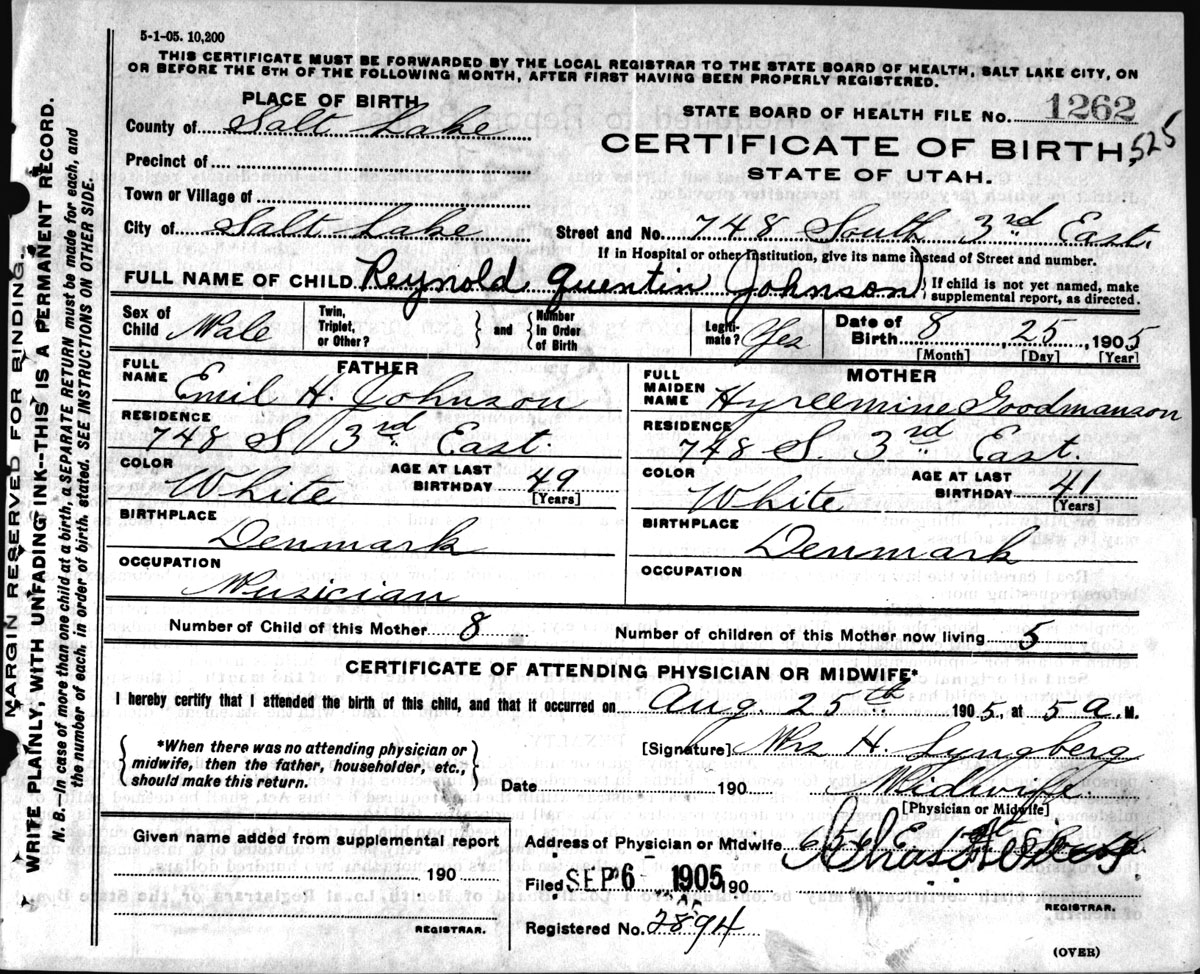 5-1-05. 10,200
THIS CERTIFICATE MUST BE FORWARDED BY THE LOCAL REGISTRAR TO THE STATE BOARD OF HEALTH, SALT LAKE CITY, ON
OR BEFORE THE 5TH OF THE FOLLOWING MONTH, AFTER FIRST HAVING BEEN PROPERLY REGISTERED.
PLACE OF BIRTH
STATE BOARD OF HEALTH FILE NO. 1262
County of Salt Lake
CERTIFICATE OF BIRTH 525
Precinct of
STATE OF UTAH.
Town or Village of
City of Salt Lake Street and No. 748 South 3rd East.
If in Hospital or other Institution, give its name instead of Street and number.
FULL NAME OF CHILD Reynold Quentin Johnson } If child is not yet named, make supplemental report, as directed.
Sex of Child Male Twin, Triplet, or Other? } and { Number in Order of Birth Legiti-mate? Yes Date of Birth 8, 25, 1905
[Month] [Day] [Year]
FATHER
MOTHER
FULL NAME Emil H. Johnson
FULL MAIDEN NAME Hyreemine Goodmanson
RESIDENCE 748 S. 3rd East.
RESIDENCE 748 S. 3rd East.
COLOR White AGE AT LAST BIRTHDAY 49 [Years]
COLOR White AGE AT LAST BIRTHDAY 41 [Years]
BIRTHPLACE Denmark
BIRTHPLACE Denmark
OCCUPATION Musician
OCCUPATION
Number of Child of this Mother 8 Number of children of this Mother now living 5
CERTIFICATE OF ATTENDING PHYSICIAN OR MIDWIFE*
I hereby certify that I attended the birth of this child, and that it occurred on Aug. 25th 1905, at 5 a. M.
{ *When there was no attending physician or midwife, then the father, householder, etc., should make this return. }
[Signature] Mrs H. Lyngberg
Date 190 Midwife.
[Physician or Midwife]
Given name added from supplemental report
190
REGISTRAR.
Address of Physician or Midwife 656 E
Filed SEP 6 1905 190
REGISTRAR.
Registered No. 2894
(OVER)
MARGIN RESERVED FOR BINDING.
WRITE PLAINLY, WITH UNFADING INK--THIS IS A PERMANENT RECORD.
N. B.—In case of more than one child at a birth, a SEPARATE RETURN must be made for each, and
the number of each, in order of birth, stated. SEE INSTRUCTIONS ON OTHER SIDE.